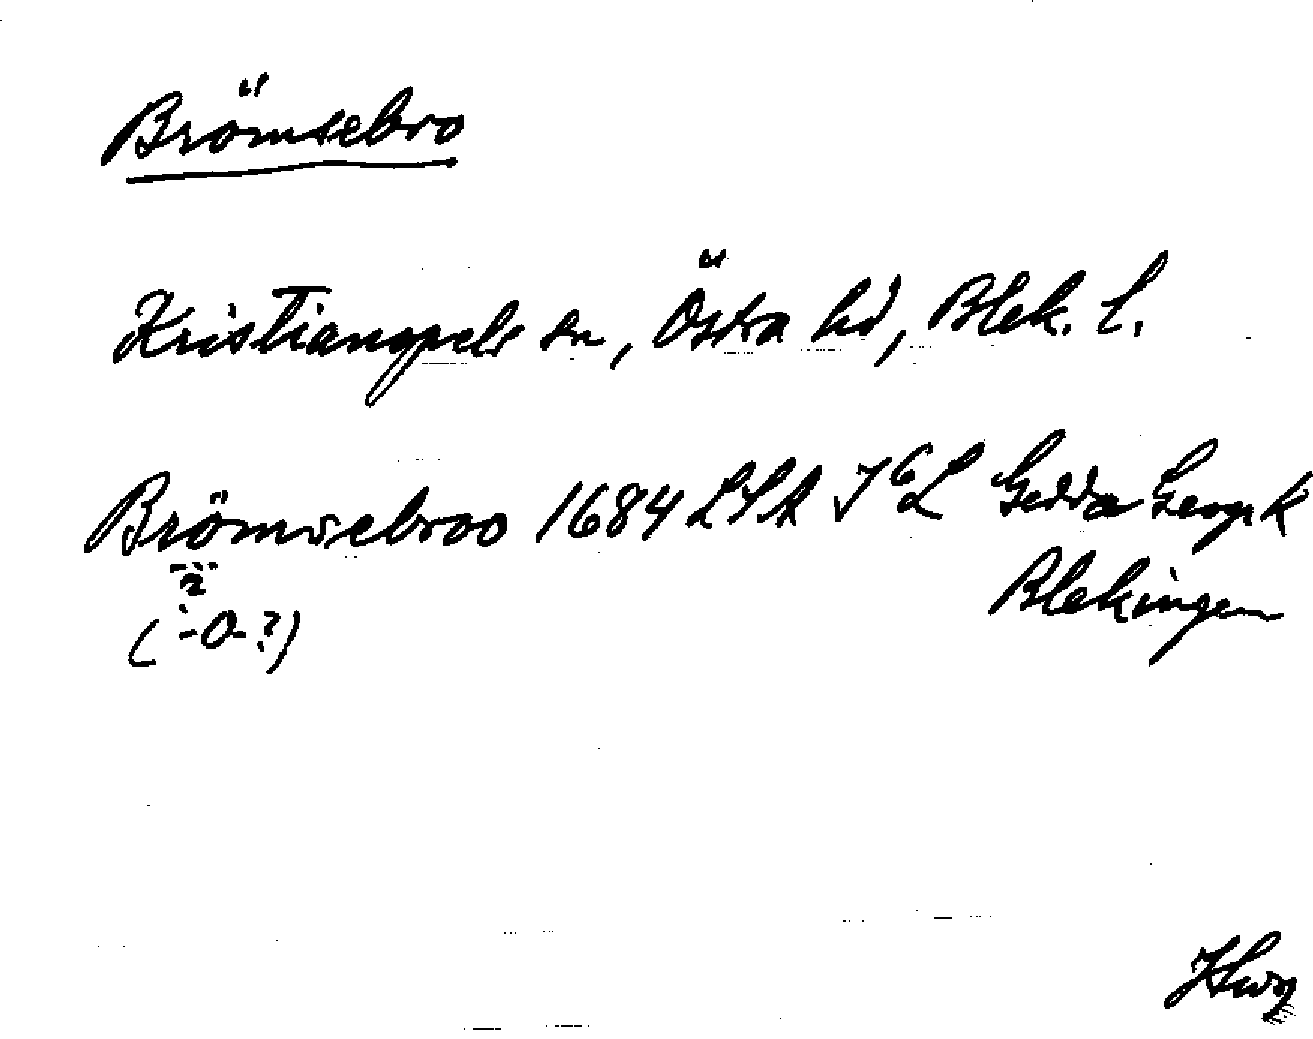 Brömsebro
Kristianopels sn, Östra hd, Blek. l.
Brömsebroo 1684 LSA Gedda Geogr K
Blekingen
(-o-?)